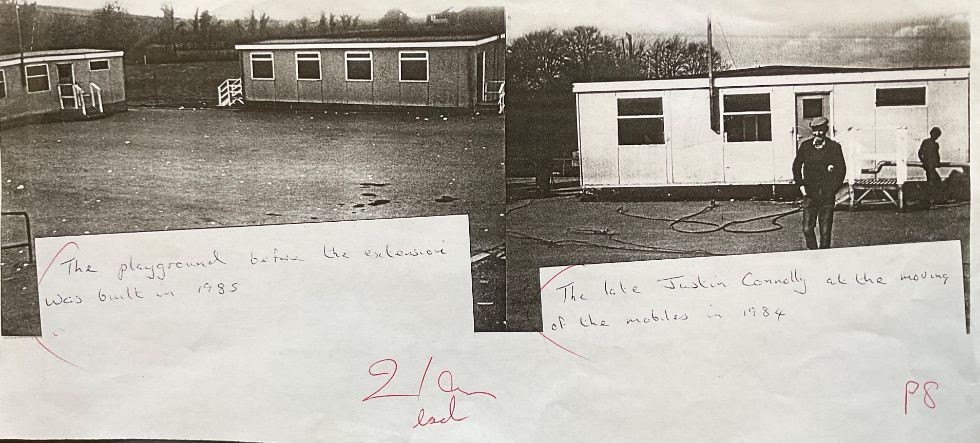 The playground before the extension
was built in 1985
The late Justin Connolly at the moving
of the mobiles in 1984
P8